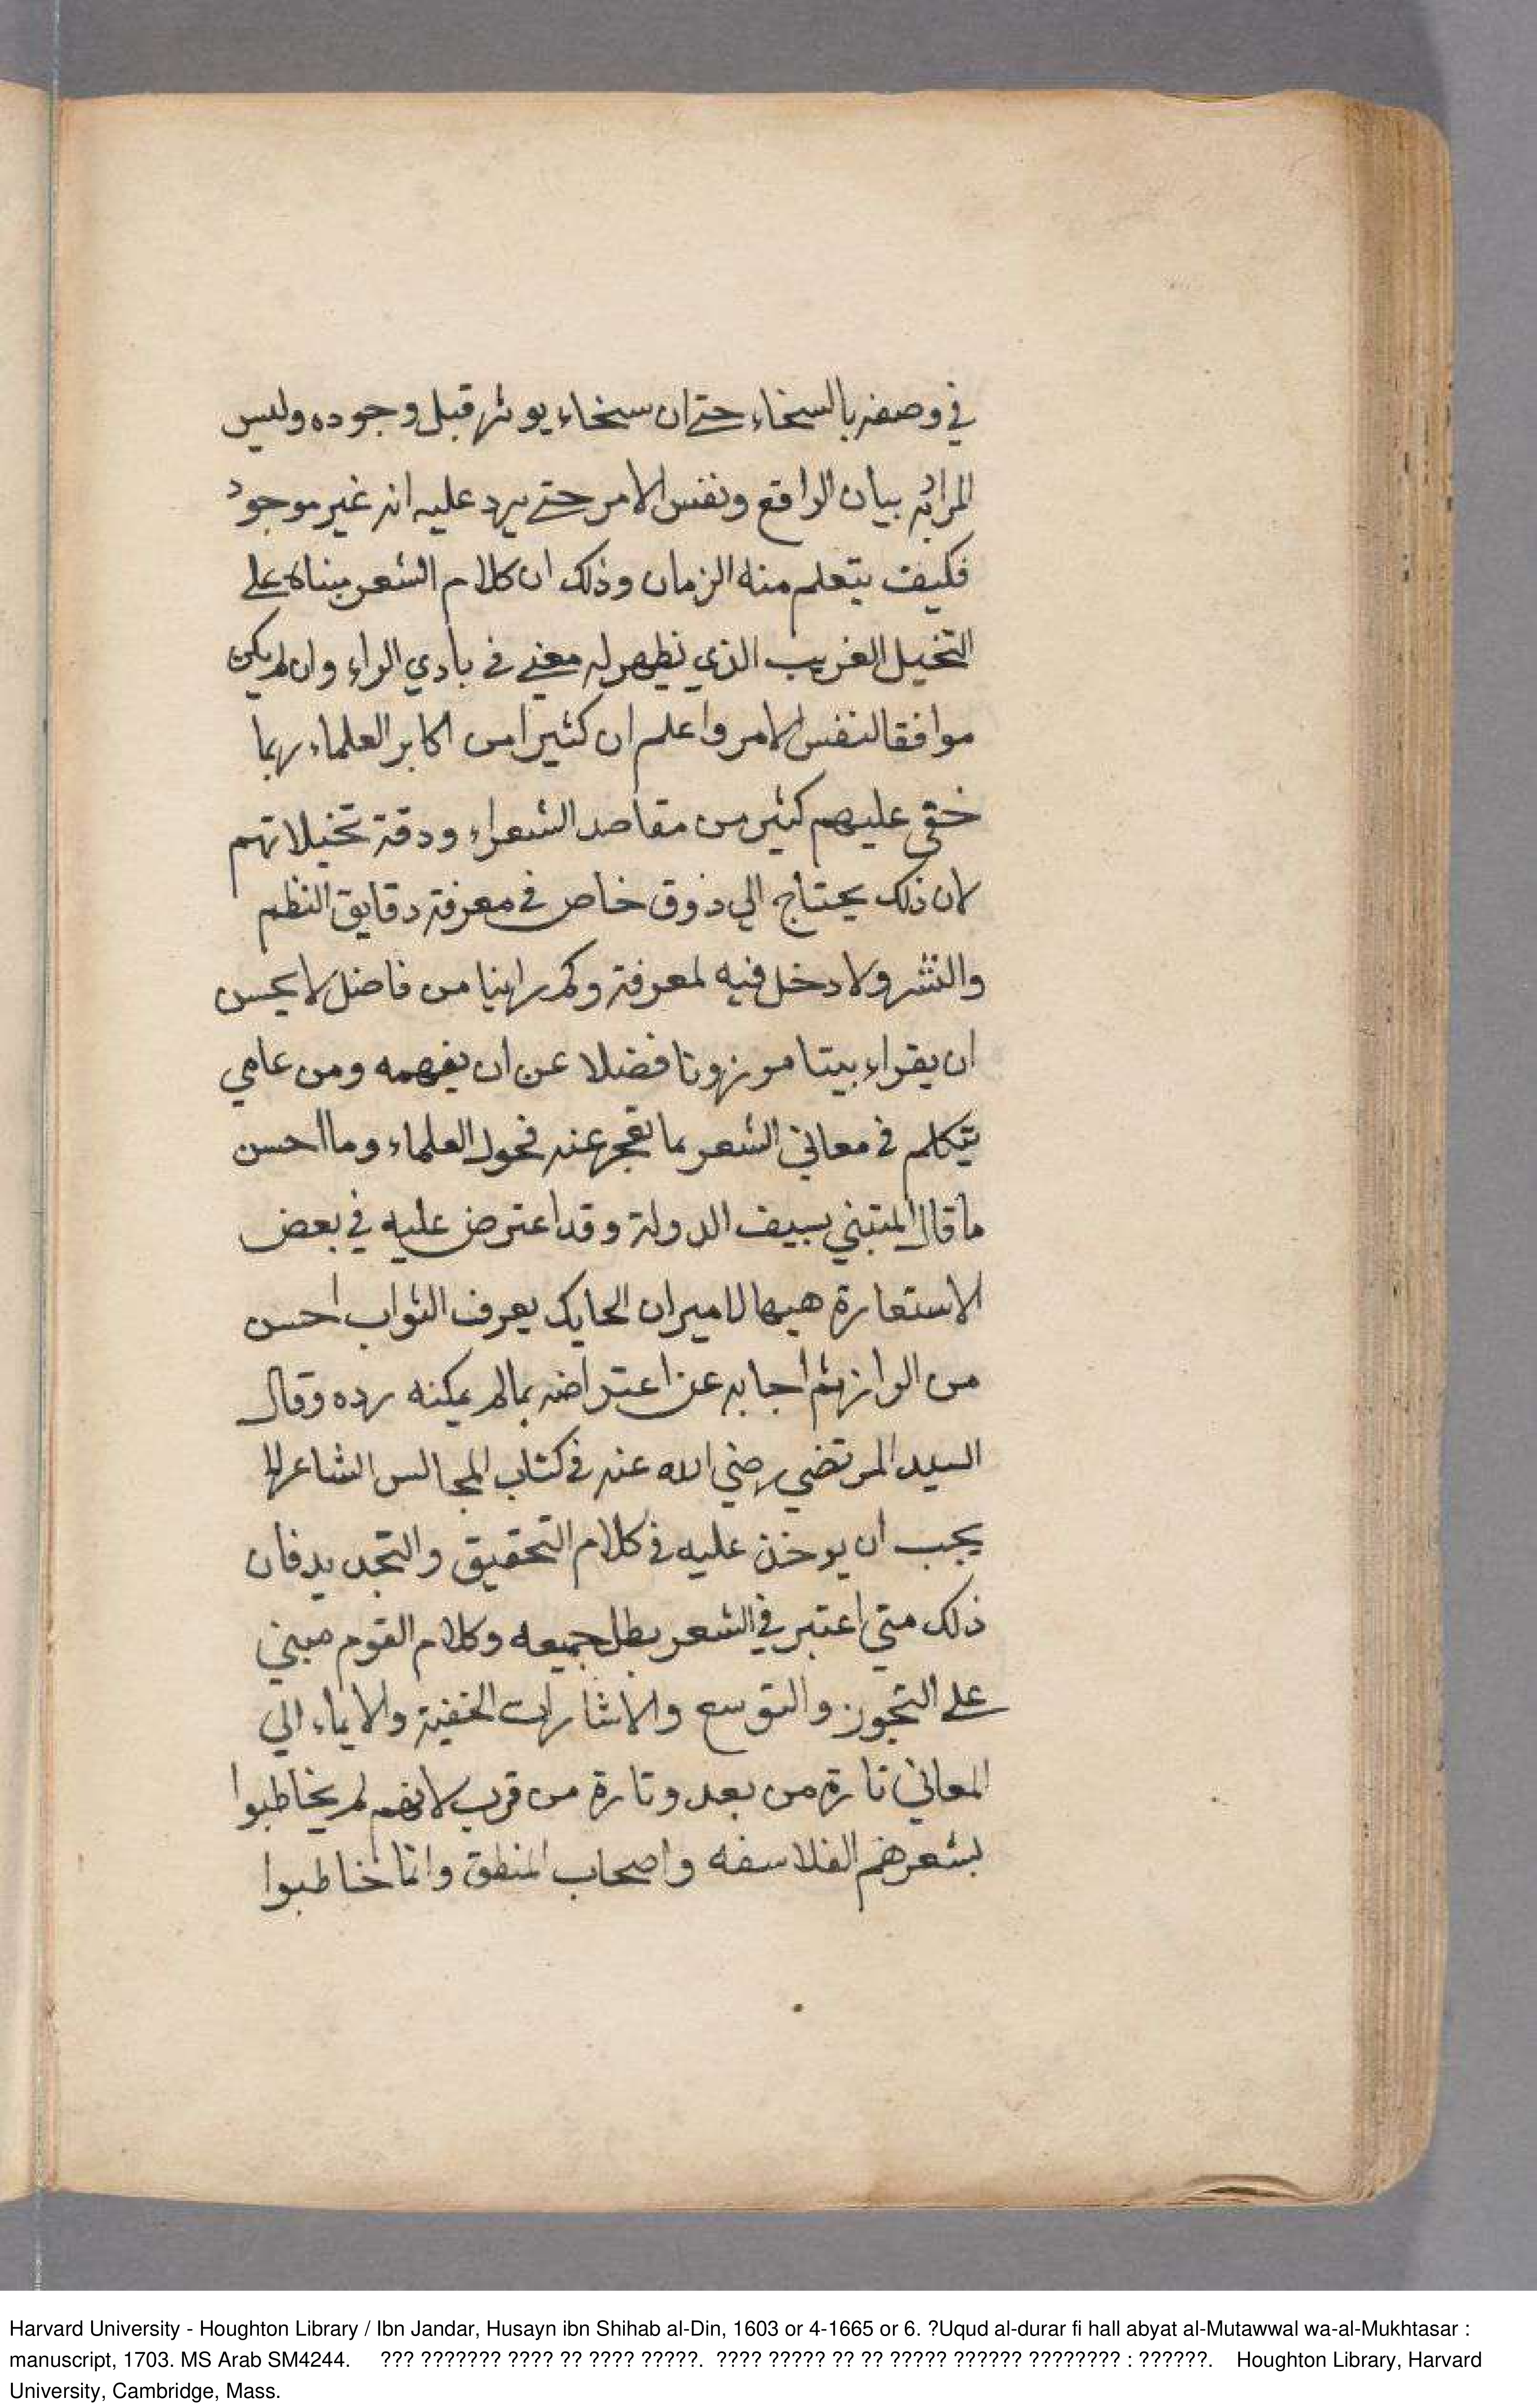 في وصفه بالسخاء حتي ان سخاء يوثر قبل وجوده وليس
المراد به بيان الواقع ونفس الامر حتي يرد عليه انه غير موجود
فكيف يتعلم منه الزمان وذلك ان كلام الشعر مبناه علي
التخيل الغريب الذي يظهر له معني في بادي الراء وان لم يكن
موافقا لنفس الامر واعلم ان كثيرا من اكابر العلماء ربما
خفي عليهم كثير من مقاصد الشعراء ودقة تخيلاتهم
لان ذلك يحتاج الي ذوق خاص في معرفة دقايق النظم
والنثر ولا دخل فيه لمعرفة وكم راينا من فاضل لا يحسن
ان يقراء بيتا موزونا فضلا عن ان يفهمه ومن عامي
يتكلم في معاني الشعر بما تعجز عنه فحول العلماء وما احسن
ما قال المتبني بسيف الدولة وقد اعترض عليه في بعض
الاستعارة الامير ان الحايك يعرف الثواب احسن
من ثم اجابه عن اعتراضه بما لم يمكنه رده وقال
السيد المرتضي رضي الله عنه في كتاب المجالس الشاعر لا
يجب ان يوخذ عليه في كلام التحقيق والتجديد فان
ذلك متي اعتبر في الشعر بطل جميعه وكلام القوم مبني
علي التجوز والتوسع والاشارات الخفية والايماء الي
المعاني تارة من بعد وتارة من قرب لانهم لم يخاطبوا
بشعرهم الفلاسفه واصحاب المنطق وانما خاطبوا
Harvard University - Houghton Library / Ibn Jandar, Husayn ibn Shihab al-Din, 1603 or 4-1665 or 6. ?Uqud al-durar fi hall abyat al-Mutawwal wa-al-Mukhtasar :
manuscript, 1703. MS Arab SM4244. ??? ??????? ???? ?? ???? ?????. ???? ????? ?? ?? ????? ?????? ???????? : ??????. Houghton Library, Harvard
University, Cambridge, Mass.